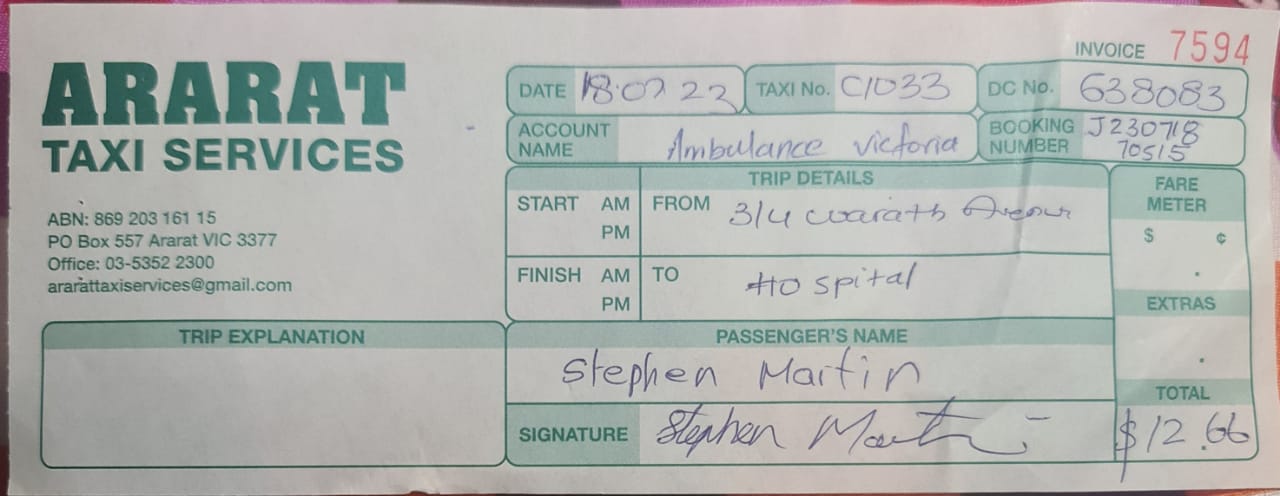 INVOICE 7594
ARARAT
TAXI SERVICES
ABN: 869 203 161 15
PO Box 557 Ararat VIC 3377
Office: 03-5352 2300
ararattaxiservices@gmail.com
DATE 18.07 23 TAXI No. C1033 DC No. 638083
ACCOUNT NAME Ambulance victoria
BOOKING NUMBER J230718
70515
TRIP DETAILS
START AM PM FROM 3/4 Avenue
FINISH AM PM TO Hospital
FARE METER
$ ¢
.
EXTRAS
.
TOTAL
$12.66
TRIP EXPLANATION
PASSENGER'S NAME
Stephen Martin
SIGNATURE Stephen Martin